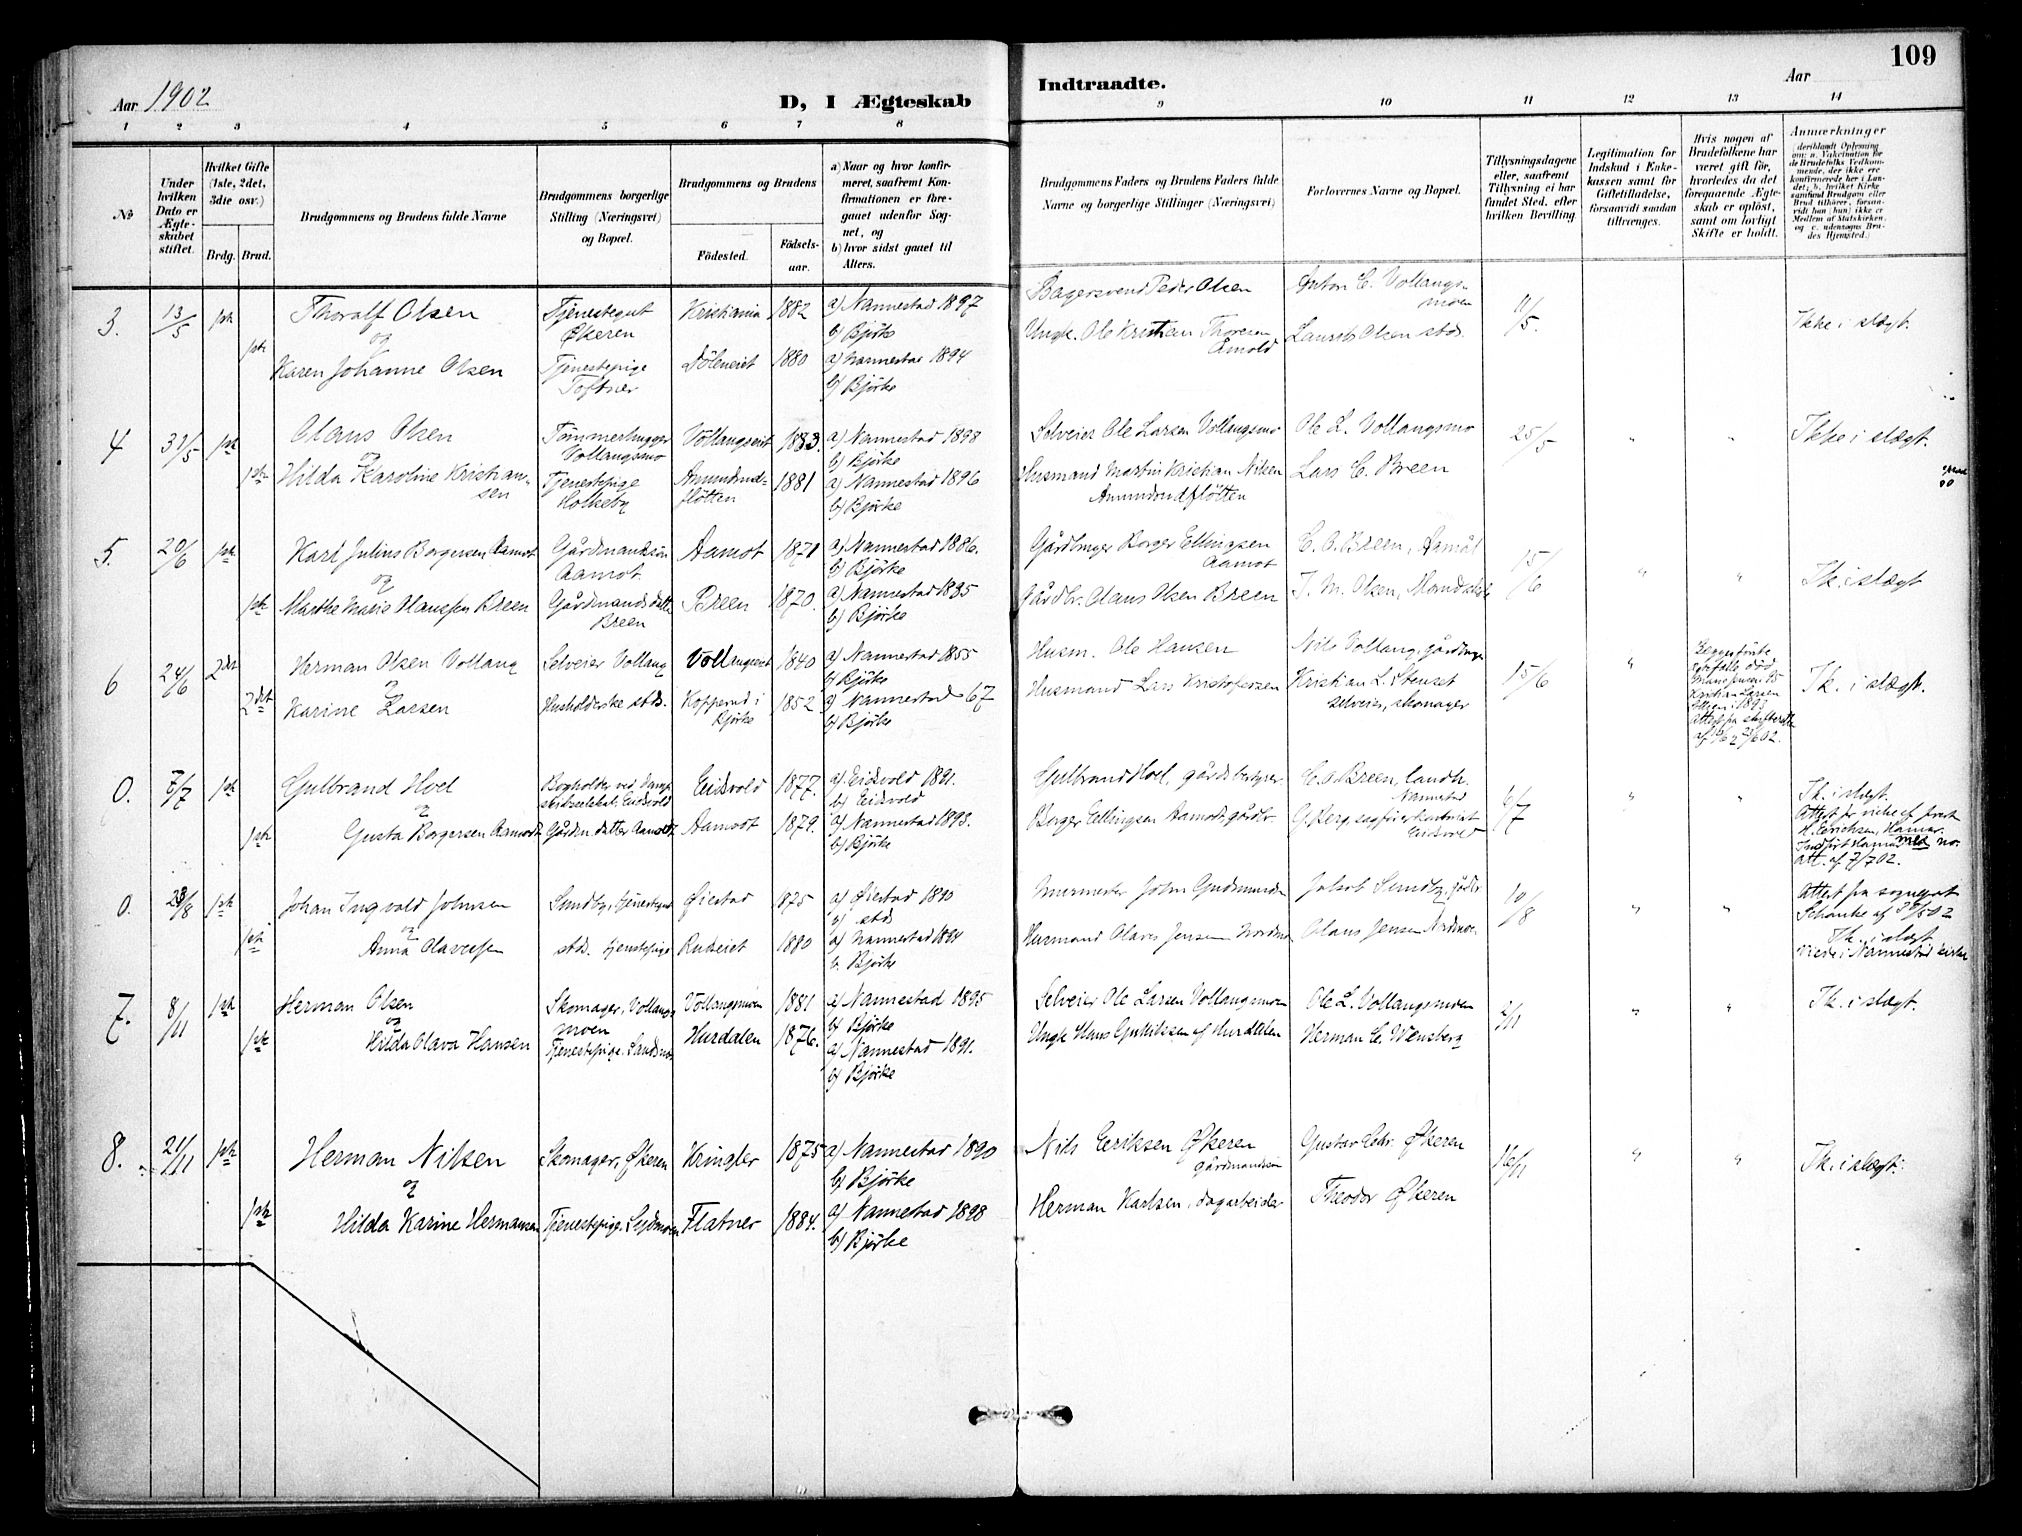 109
Aar 1902
D, I Ægteskab
Indtraadte.
Aar
1 2 3 4 5 6 7 8 9 10 11 12 13 14
No
Under hvilken Dato er Ægteskabet stiftet.
Hvilket Gifte (1ste, 2det, 3dte osv.)
Brdg. Brud.
Brudgommens og Brudens fulde Navne
Brudgommens borgerlige Stilling (Næringsvei) og Bopæl.
Brudgommens og Brudens
Födested.
Födselsaar.
a) Naar og hvor konfirmeret, saafremt Konfirmationen er foregaaet udenfor Sognet, og
b) hvor sidst gaaet til Alters.
Brudgommens Faders og Brudens Faders fulde Navne og borgerlige Stillinger (Næringsvei)
Forlovernes Navne og Bopæl.
Tillysningsdagene eller, saafremt Tillysning ei har fundet Sted, efter hvilken Bevilling.
Legitimation for Indskud i Enkekassen samt for Giftetilladelse, forsaavidt saadan tiltrænges.
Hvis nogen af Brudefolkene har været gift för, hvorledes da det foregaaende Ægteskab er oplöst, samt om lovligt Skifte er holdt.
Anmærkninger
(deriblandt Oplysning om: a. Vakcination for de Brudefolks Vedkommende, der ikke ere konfirmerede her i Landet; b. hvilket Kirkesamfund Brudgom eller Brud tilhörer, forsaavidt han (hun) ikke er Medlem af Statskirken, og c. udensogns Brudes Hjemsted.)
3. 13/5 1ste Thoralf Olsen Tjenestegut Økeren Kristiania 1882 a) Nannestad 1897 b) Bjørke Bagersvend Peder Olsen Anton C. Vollangsmoen 11/5. Ikke i slægt.
og
1ste Karen Johanne Olsen Tjenestepige Toftner Döleneiet 1880 a) Nannestad 1894 b) Bjørke Ungk. Ole Kristian Thoresen Laurits Olsen stds.
4 31/5 1ste Olaus Olsen Tømmerhugger Vollangsmo Vollangseiet 1883. a) Nannestad 1898 b) Bjørke Selveier Ole Larsen Vollangsmo Ole L. Vollangsmo 25/5 " " Ikke i slægt.
og
1ste Hilda Karoline Kristiansen Tjenestepige Holkeby Amundrudfløtten 1881 a) Nannestad 1896 b) Bjørke Husmand Martin Kristian Nilsen Amundrudfløtten Lars C. Breen
5. 20/6 1ste Karl Julius Borgersen Aamot Gårdmandssön Aamot Aamot 1871 a) Nannestad 1886. b) Bjørke Gårdbruger Borger Ellingsen Aamot C. O. Breen, 15/6 " " Ik. i slægt
og
1ste Marthe Marie Olaussen Breen Gårdmandsdatter Breen Breen 1870. a) Nannestad 1885 b) Bjørke Gårdbr. Olaus Olsen Breen J. M. Olsen,
6 24/6 2det Herman Olsen Vollang Selveier Vollang Vollangseiet 1840 a) Nannestad 1855 b) Bjørke Husm. Ole Hansen Nils Vollang, gårdbruger 15/6 " Ik. i slægt.
og
2det Karine Larsen Husholderske stds. Kopperud i Bjørke 1852 a) Nannestad 67 b) Bjørke Husmand Lars Kristofersen Kristian L. Stenset selveier, skomager
0. 7/7 1ste Gulbrand Hoel Bogholder ved Eidsvold Eidsvold 1877. a) Eidsvold 1891. b) Eidsvold Gulbrand Hoel, gårdsbestyrer C. O. Breen, landh. Nannestad 6/7 " " Ik. i slægt.
og
1ste Gusta Borgersen Aamodt Gårdm. datter Aamodt Aamodt 1879. a) Nannestad 1893. b) Bjørke Borger Ellingsen Aamodt, gårdbr. Eidsvold
0. 28/8 1ste Johan Ingvald Johnsen Sundby, tjenestegut Øiestad 1875 a) Øiestad 1890 b) stds Murmester John Gudmundsen Jakob Sundby, gårdbr 10/8 " " Attest fra sogneprest
og
1ste Anna Olavesen stds. tjenestepige Rudeiet 1880 a) Nannestad b. Bjørke Husmand Olaves Jensen Olaus Jensen Ik. i slægt. viede i Nannestad kirke
7. 8/11 1ste Herman Olsen Skomager, Vollangsmoen Vollangsmoen 1881 a) Nannestad 1895 b) Bjørke Selveier Ole Larsen Vollangsmoen Ole L. Vollangsmoen 2/11 " " Ik. i slægt.
og
1ste Hilda Olava Hansen Tjenestepige. Hurdalen 1876. a) Nannestad 1891. b) Bjørke Ungk Hans Gulliksen af Hurdalen Herman C. Wensberg
8. 21/11 1ste Herman Nilsen Skomager, Økeren Kringler 1875 a) Nannestad 1890 b) Bjørke Nils Eriksen Økeren gårdmandssön Gustav Økeren 16/11 " " Ik. i slægt.
og
1ste Hilda Karine Hermansen Tjenestepige, Flatner 1884. a) Nannestad 1898 b) Bjørke Herman Karlsen, dagarbeider Theodor Økeren